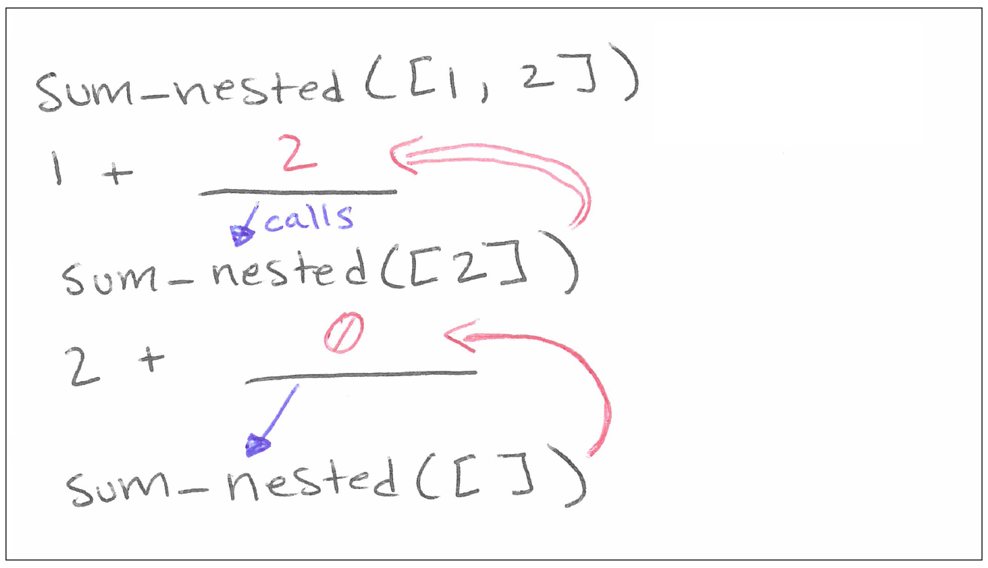 sum-nested([1, 2])
1 + 2
calls
sum-nested([2])
2 + 0
sum-nested([ ])